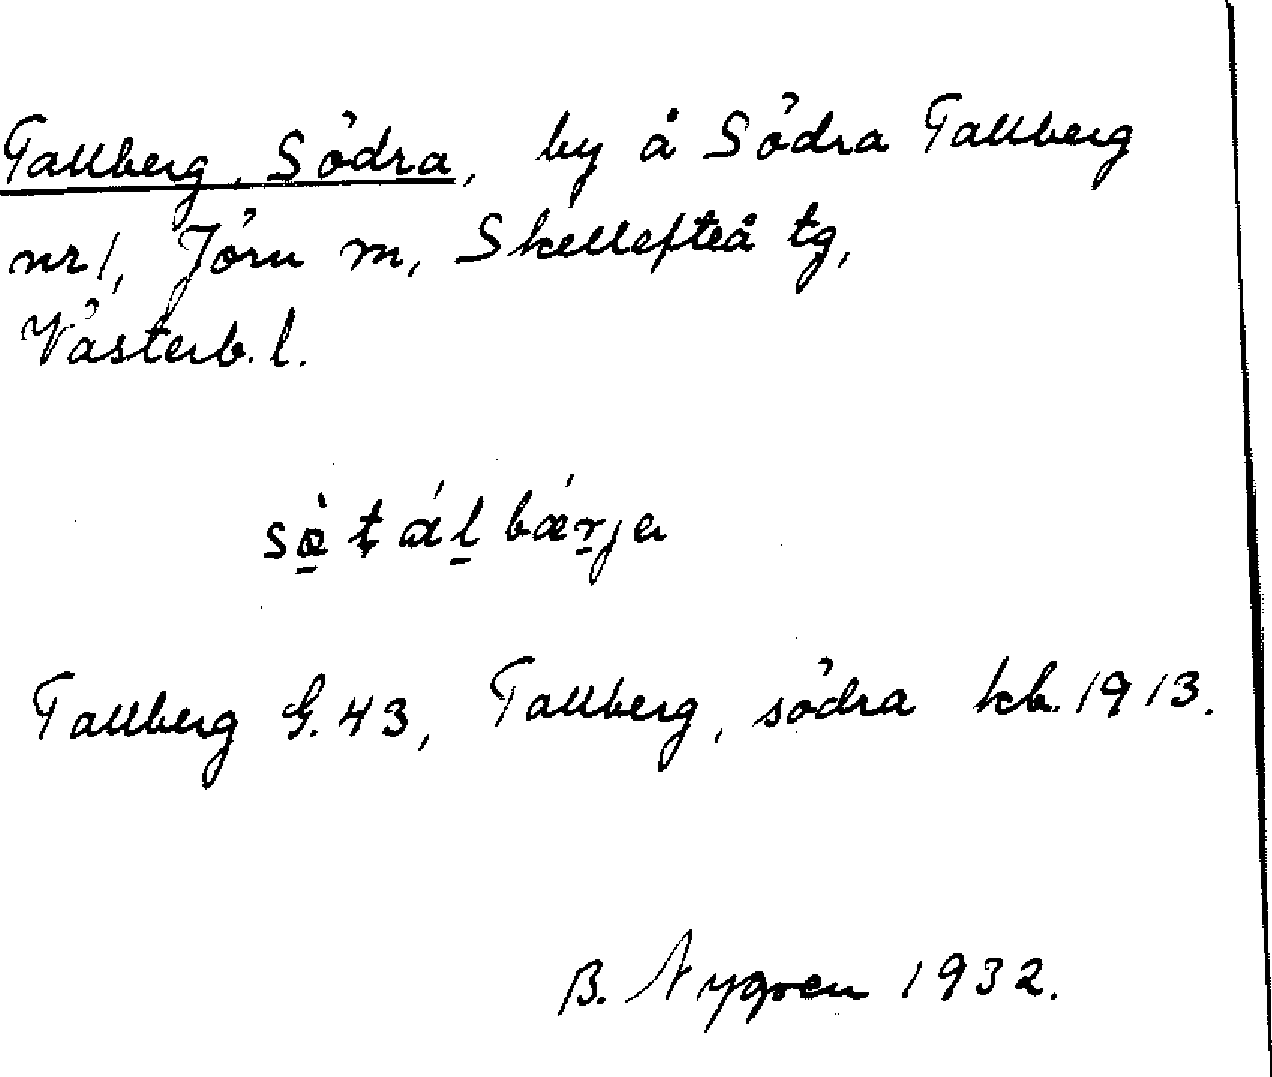 Tallberg, Södra, by å Södra Tallberg
nr 1, Jörn m, Skellefteå tg,
Västerb. l.
Tallberg G. 43, Tallberg, södra kb. 1913.
B. Nygren 1932.